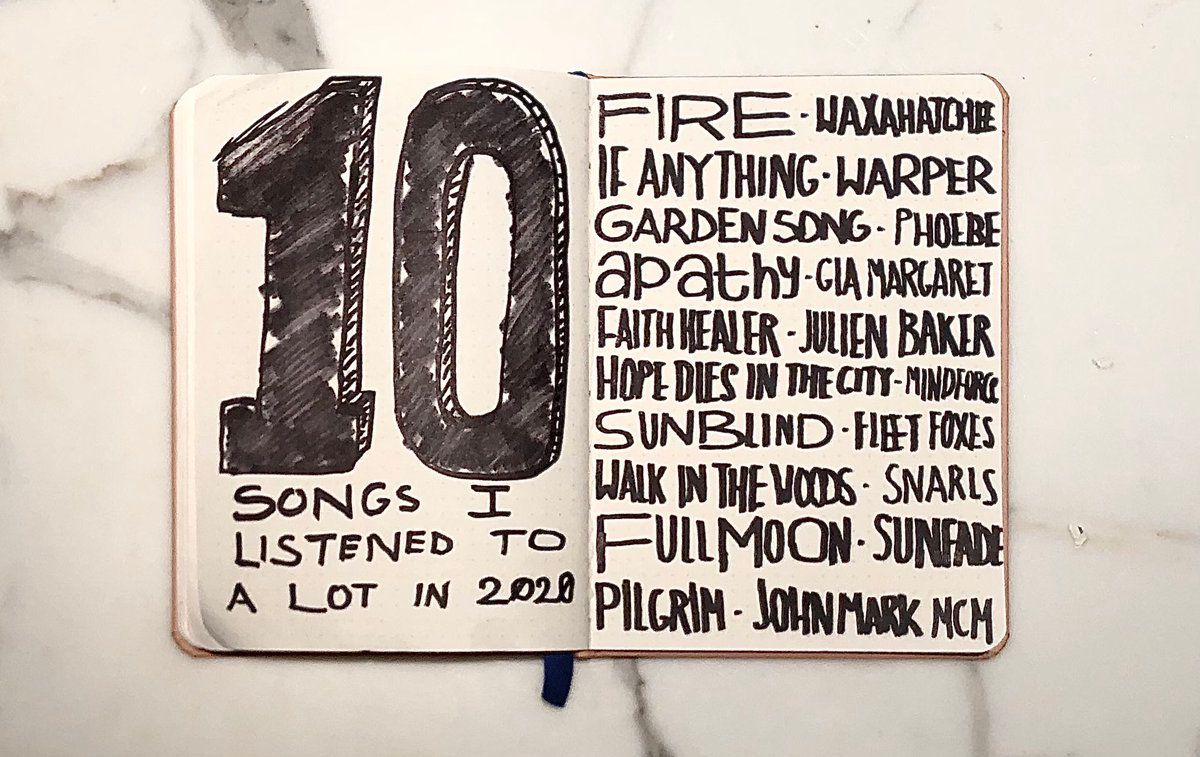 10
SONGS I
LISTENED TO
A LOT IN 2020
FIRE - WAXAHATCHEE
IF ANYTHING - WARPER
GARDEN SONG - PHOEBE
apathy - GIA MARGARET
FAITH HEALER - JULIEN BAKER
HOPE DIES IN THE CITY - MINDFORCE
SUNBLIND - FLEET FOXES
WALK IN THE WOODS - SNARLS
FULL MOON - SUNFADE
PILGRIM - JOHN MARK MCM